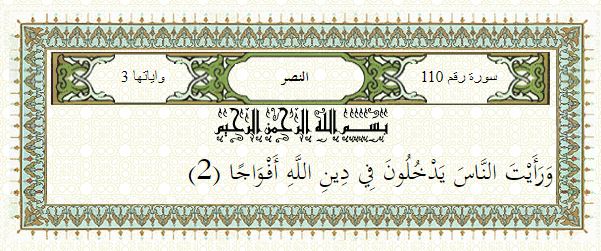 سورة رقم 110 النصر واياتها 3
بسم الله الرحمن الرحيم
وَرَأَيْتَ النَّاسَ يَدْخُلُونَ فِي دِينِ اللَّهِ أَفْوَاجًا (2)